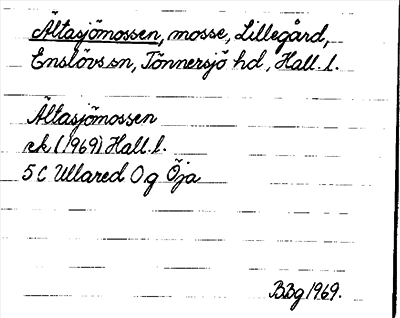 Ältasjömossen, mosse, Lillegård,
Enslövs sn, Tönnersjö hd, Hall. l.
Ältasjömossen
ek (1969) Hall. l.
5 C Ullared O g Öja
BBg 1969.